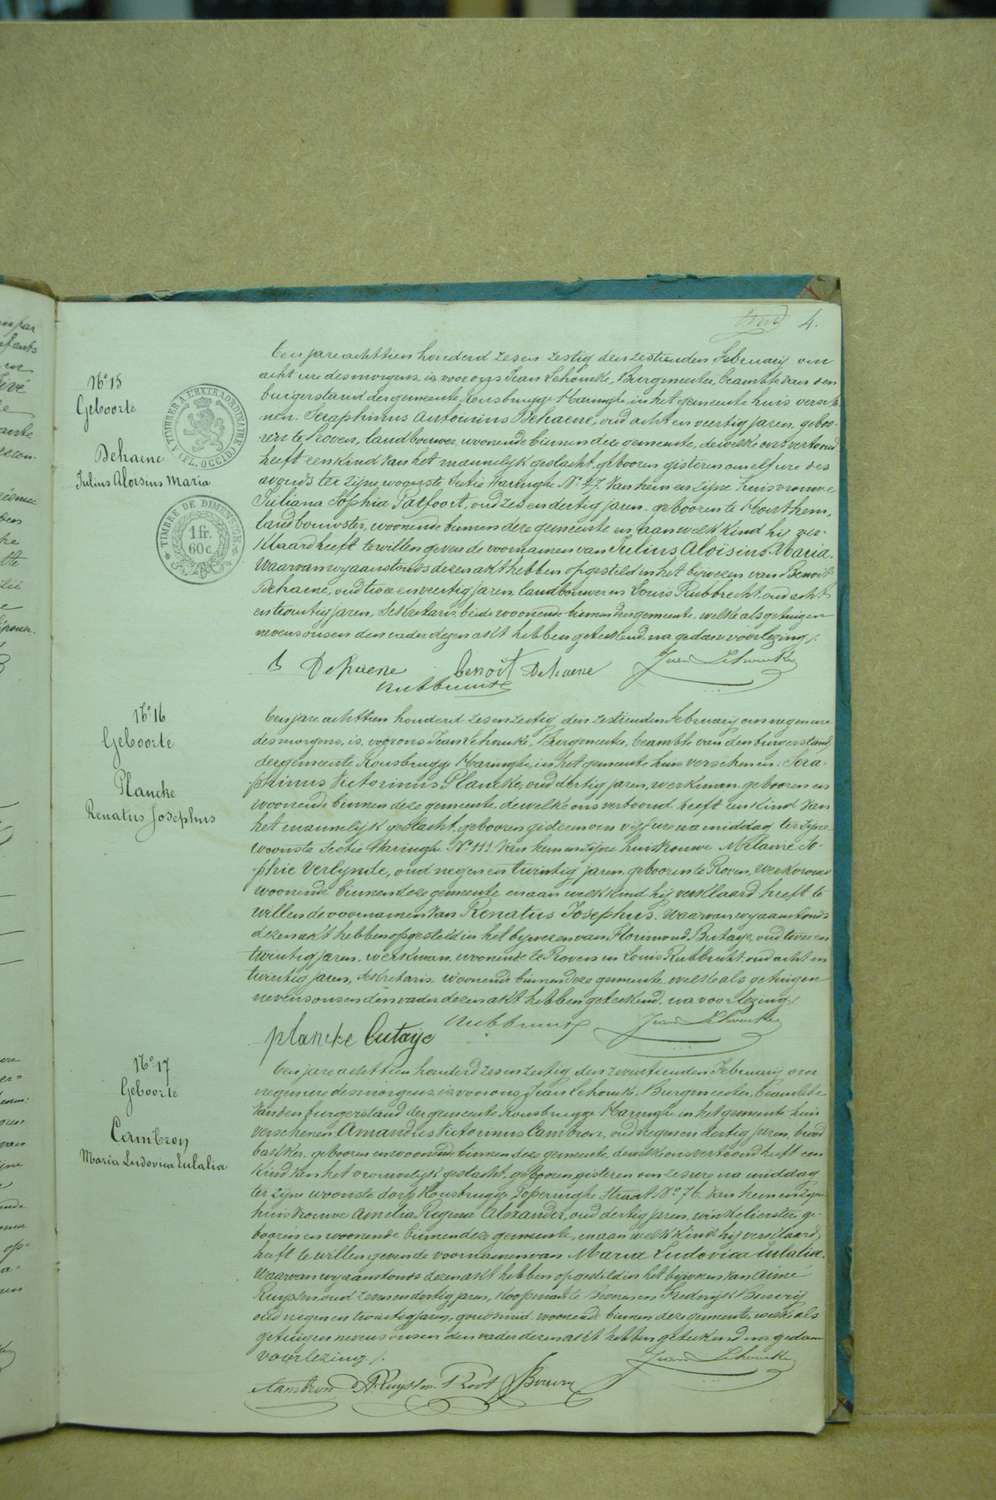 4.
N° 15
Geboorte
Dehaene
Julius Aloïsius Maria
TIMBRE A L'EXTRAORDINAIRE
(FL. OCCID.)
TIMBRE DE DIMENSION
1 fr.
60 c.
Een jare achttien honderd zes en zestig den zestienden February om
acht ure des morgens, is voor ons Jean Lehoucke, Burgemeester, beambte van den
burgerstand der gemeente Rousbrugge Haringhe in het gemeente huis versche-
nen Seraphinus Antonius Dehaene, oud acht en veertig jaren, gebo-
ren te Proven, landbouwer, woonende binnen deze gemeente, dewelke ons vertoond
heeft een kind van het mannelijk geslacht, geboren gisteren om elf ure des
avonds ter zijne woonste Sectie Haringhe N° 27 van hem en zijne huisvrouwe
Juliana Sophia Patfoort, oud zes en dertig jaren, geboren te Houthem,
landbouwster, woonende binnen deze gemeente en aan welk kind hij ver-
klaard heeft te willen geven de voornamen van Julius Aloisius Maria.
Waarvan wy aanstonds dezen akt hebben opgesteld in het bijwezen van Benoit
Dehaene, oud twee en veertig jaren, landbouwer en Louis Rubbrecht, oud acht
en twintig jaren, Sekretaris, beide woonende binnen dese gemeente, welke als getuigen
nevens ons en den vader dezen akt hebben geteekend, na gedane voorlezing /.
S Dehaene Benoit Dehaene Jean Lehoucke
N° 16
Geboorte
Plancke
Renatus Josephus
Een jare achttien honderd zes en zestig den zestienden February om negen ure
des morgens, is, voor ons Jean Lehoucke, Burgemeester, beambte van den burgerstand
der gemeente Rousbrugge Haringhe, in het gemeente huis verschenen: Sera-
phinus Victorinus Plancke, oud dertig jaren, werkman, geboren en
woonende binnen deze gemeente, dewelke ons vertoond heeft een kind van
het mannelijk geslacht, geboren gisteren om vijf ure na middag ter zijne
woonste Sectie Haringhe N° 111 van hem en zijne huisvrouwe Melanie So-
phie Verlynde, oud negen en twintig jaren, geboren te Proven, werkvrouw
woonende binnen deze gemeente en aan welk kind hij verklaard heeft te
willen de voornamen van Renatus Josephus. Waarvan wy aanstonds
dezen akt hebben opgesteld in het bijwezen van Florimond Butaye, oud twee en
twintig jaren, werkman, woonende te Proven en Louis Rubbrecht, oud acht en
twintig jaren, Sekretaris, woonende binnen deze gemeente, welke als getuigen
nevens ons en den vader dezen akt hebben geteekend, na voorlezing /.
Jean Lehoucke
plancke butaye
N° 17
Geboorte
Cambron
Maria Ludovica Eulalia
Een jare achttien honderd zes en zestig den February om
negen ure des morgens is voor ons Jean Lehoucke, Burgemeester, beambte
van den burgerstand der gemeente Rousbrugge Haringhe in het gemeente huis
verschenen Amandus Victorinus Cambron, oud negen en dertig jaren, brood
bakker, geboren en woonende binnen deze gemeente, dewelke ons vertoond heeft een
kind van het vrouwelijk geslacht, geboren gisteren om zes ure na middag
ter zijne woonste dorp Rousbrugge Poperinghe Straat N° 76 van hem en zijne
huisvrouwe Amelia Regina Alexander, oud dertig jaren, winkelierster, ge-
boren en woonende binnen deze gemeente, en aan welk kind hij verklaard
heeft te willen geven de voornamen van Maria Ludovica Eulalia.
Waarvan wy aanstonds dezen akt hebben opgesteld in het bijwezen van Aimé
oud zeven en dertig jaren, koopman te en Frederyk
oud negen en twintig jaren, goudsmid, woonende binnen deze gemeente, welke als
getuigen nevens ons en den vader dezen akt hebben geteekend na gedane
voorlezing /.
Jean Lehoucke
Cambron